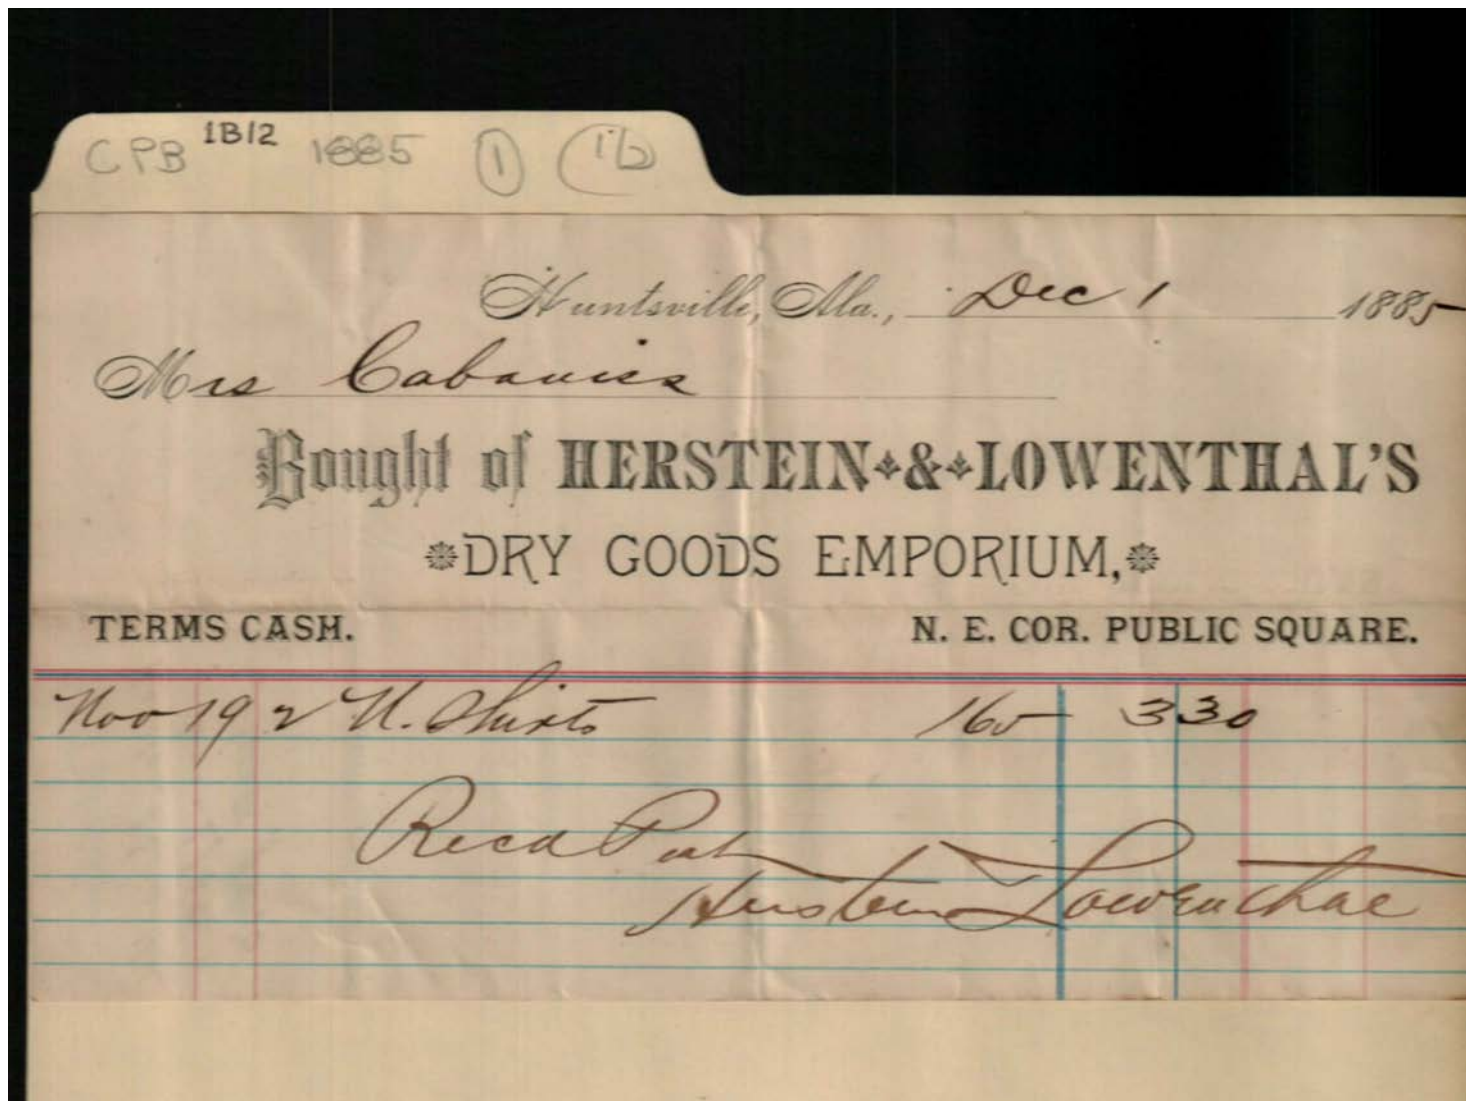 CPB 1B12 1885 1 1b
Huntsville, Ala., Dec 1 1885
Mrs Cabaniss
Bought of HERSTEIN & LOWENTHAL'S
DRY GOODS EMPORIUM,
TERMS CASH. N. E. COR. PUBLIC SQUARE.
Nov 19 2 U. Shirts 165 3 30
Recd Pmt
Herstein & Lowenthal